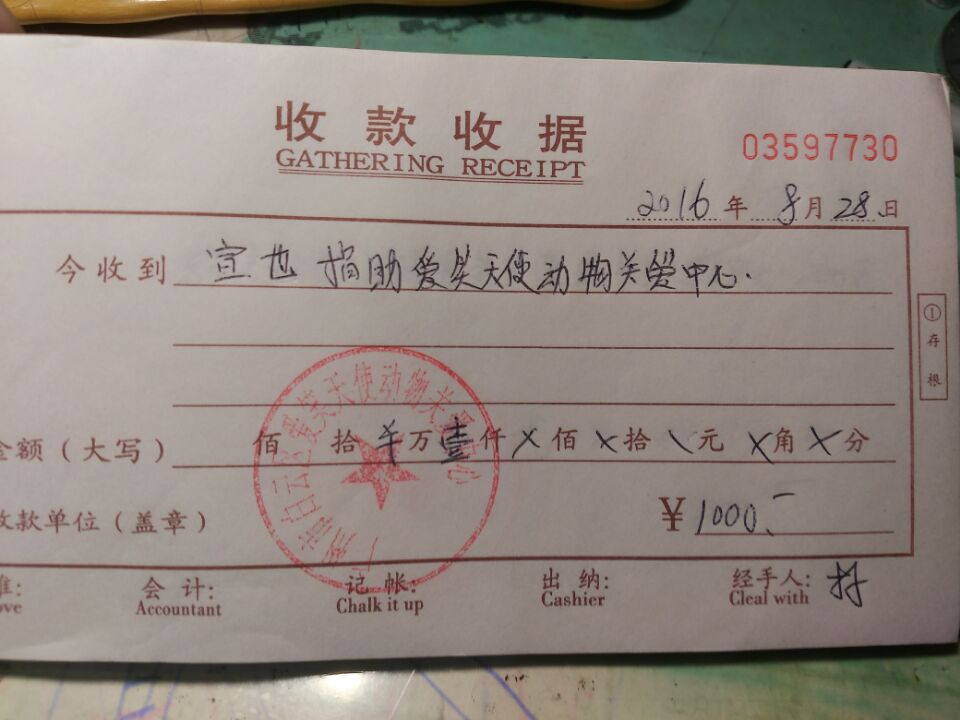 收款收据
GATHERING RECEIPT
03597730
2016年8月28日
今收到 宣也 捐助爱笑天使动物关爱中心.
①存根
金额（大写） 佰 拾 万壹仟×佰×拾 元×角×分
收款单位（盖章） ¥1000.-
广州市白云区爱笑天使动物关爱中心
会计: 记帐: 出纳: 经手人:
Accountant Chalk it up Cashier Cleal with